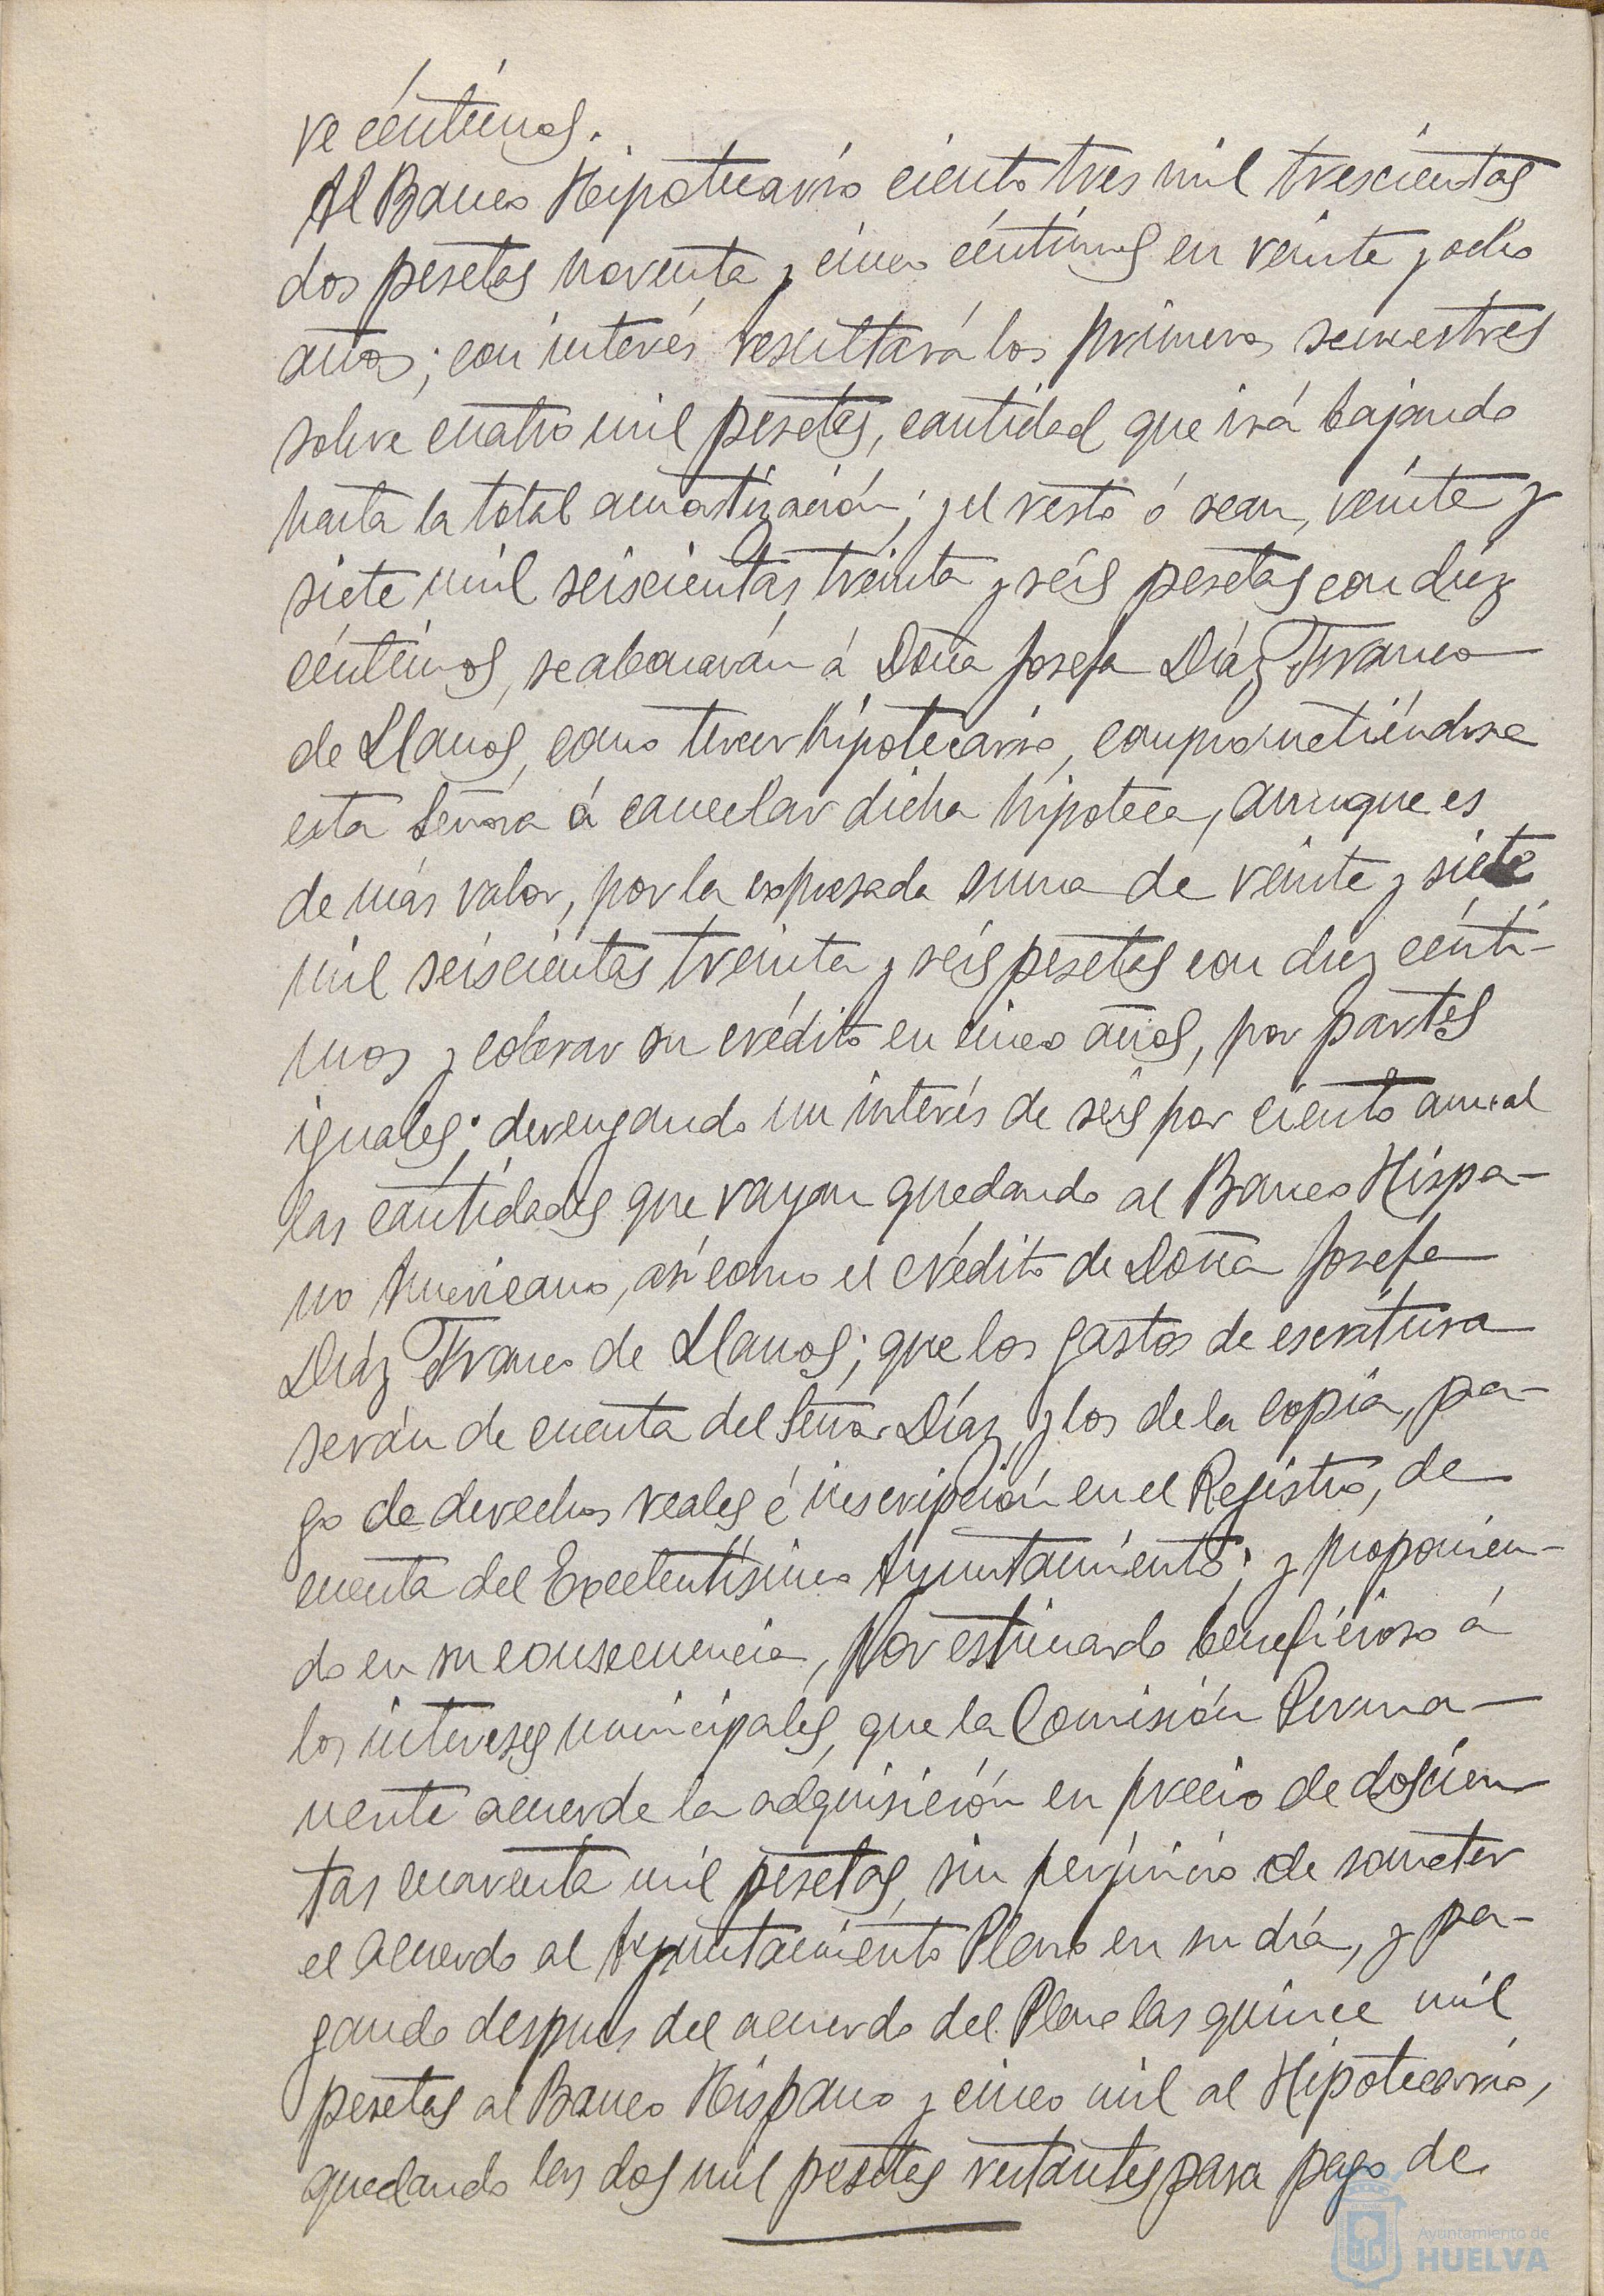 ve céntimos.
Al Banco Hipotecario ciento tres mil trescientas
dos pesetas noventa y cinco céntimos en veinte y ocho
años; con interés resultará los primeros semestres
sobre cuatro mil pesetas, cantidad que irá bajando
hasta la total amortización; y el resto ó sean, veinte y
siete mil seiscientas treinta y seis pesetas con diez
céntimos, se abonarán á Doña Josefa Díaz Franco
de Llanos, como tercer hipotecario, comprometiéndose
esta Señora á cancelar dicha hipoteca, aunque es
de más valor, por la expresada suma de veinte y siete
mil seiscientas treinta y seis pesetas con diez cénti-
mos y cobrar su crédito en cinco años, por partes
iguales; devengando un interés de seis por ciento anual
las cantidades que vayan quedando al Banco Hispa-
no Americano, así como el crédito de Doña Josefa
Díaz Franco de Llanos; que los gastos de escritura
serán de cuenta del Señor Díaz, y los de la copia, pa-
go de derechos reales é inscripción en el Registro, de
cuenta del Excelentísimo Ayuntamiento; y proponien-
do en su consecuencia, por estimarlo beneficioso á
los intereses municipales, que la Comisión Perma-
nente acuerde la adquisición en precio de doscien
tas cuarenta mil pesetas, sin perjuicio de someter
el acuerdo al Ayuntamiento Pleno en su día, y pa-
gando después del acuerdo del Pleno las quince mil
pesetas al Banco Hispano y cinco mil al Hipotecario,
quedando las dos mil pesetas restantes para pago de
Ayuntamiento de
HUELVA